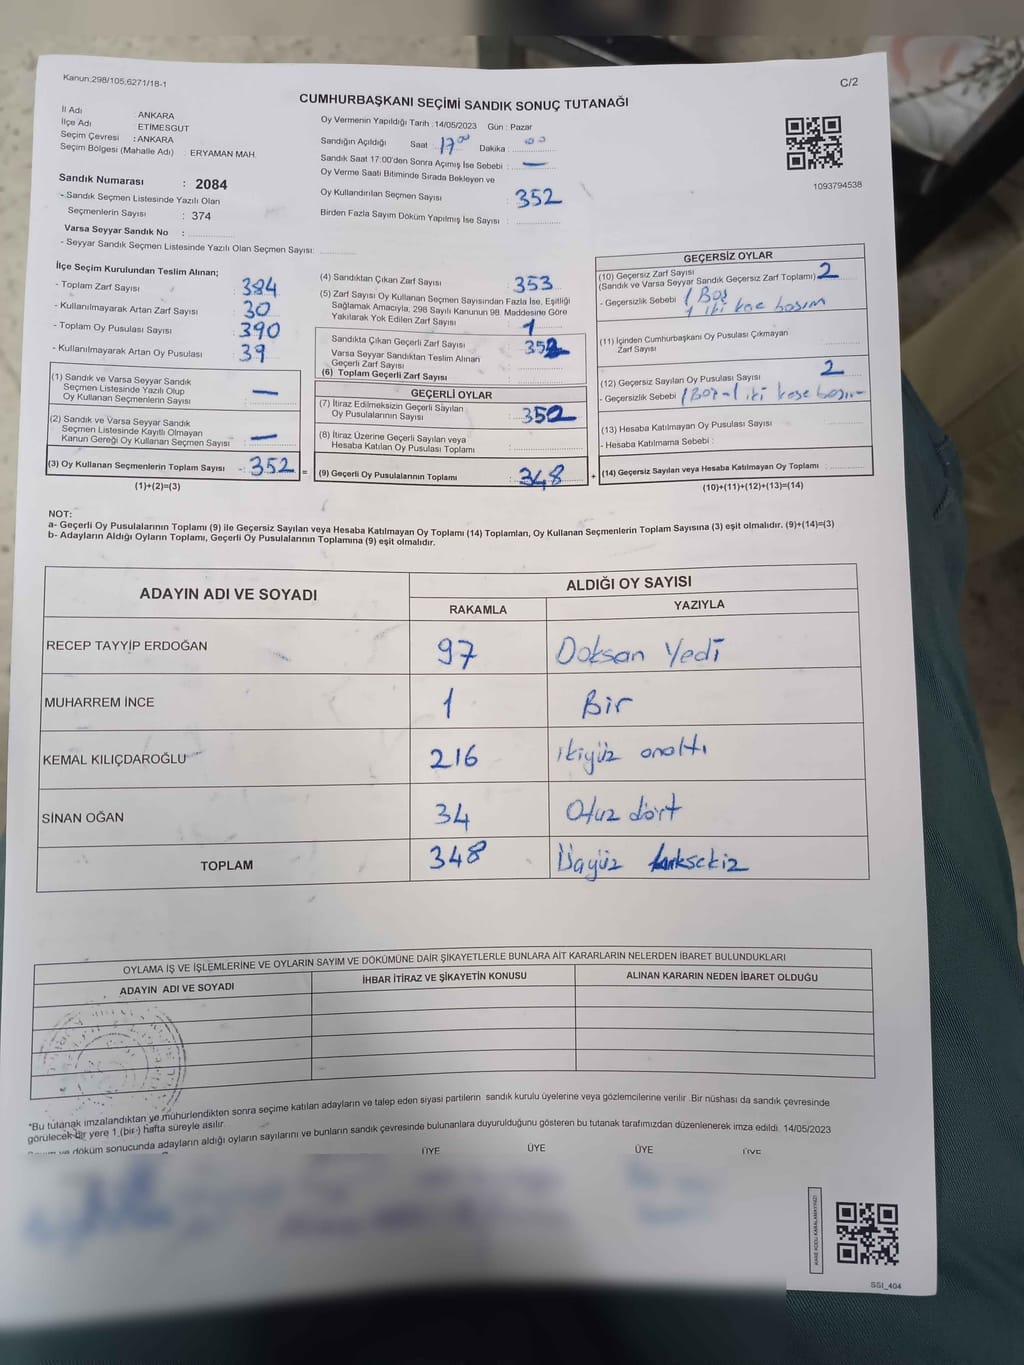 Kanun.298/105,6271/18-1
C/2
CUMHURBAŞKANI SEÇİMİ SANDIK SONUÇ TUTANAĞI
İl Adı : ANKARA
İlçe Adı : ETİMESGUT
Seçim Çevresi : ANKARA
Seçim Bölgesi (Mahalle Adı) : ERYAMAN MAH.
Oy Vermenin Yapıldığı Tarih :14/05/2023 Gün : Pazar
Sandığın Açıldığı Saat : 17 00 Dakika : 00
Sandık Saat 17:00'den Sonra Açımış İse Sebebi : —
Oy Verme Saati Bitiminde Sırada Bekleyen ve
Oy Kullandırılan Seçmen Sayısı : 352
Birden Fazla Sayım Döküm Yapılmış İse Sayısı :
1093794538
Sandık Numarası : 2084
- Sandık Seçmen Listesinde Yazılı Olan
Seçmenlerin Sayısı : 374
Varsa Seyyar Sandık No :
- Seyyar Sandık Seçmen Listesinde Yazılı Olan Seçmen Sayısı:
İlçe Seçim Kurulundan Teslim Alınan;
- Toplam Zarf Sayısı : 384
- Kullanılmayarak Artan Zarf Sayısı : 30
- Toplam Oy Pusulası Sayısı : 390
- Kullanılmayarak Artan Oy Pusulası : 39
(1) Sandık ve Varsa Seyyar Sandık
Seçmen Listesinde Yazılı Olup
Oy Kullanan Seçmenlerin Sayısı : —
(2) Sandık ve Varsa Seyyar Sandık
Seçmen Listesinde Kayıtlı Olmayan
Kanun Gereği Oy Kullanan Seçmen Sayısı : —
(3) Oy Kullanan Seçmenlerin Toplam Sayısı : 352
(1)+(2)=(3)
(4) Sandıktan Çıkan Zarf Sayısı : 353
(5) Zarf Sayısı Oy Kullanan Seçmen Sayısından Fazla İse, Eşitliği
Sağlamak Amacıyla, 298 Sayılı Kanunun 98. Maddesine Göre
Yakılarak Yok Edilen Zarf Sayısı : 1
Sandıkta Çıkan Geçerli Zarf Sayısı : 352
Varsa Seyyar Sandıktan Teslim Alınan
Geçerli Zarf Sayısı :
(6) Toplam Geçerli Zarf Sayısı
GEÇERLİ OYLAR
(7) İtiraz Edilmeksizin Geçerli Sayılan
Oy Pusulalarının Sayısı : 350
(8) İtiraz Üzerine Geçerli Sayılan veya
Hesaba Katılan Oy Pusulası Toplamı :
= (9) Geçerli Oy Pusulalarının Toplamı : 348 +
GEÇERSİZ OYLAR
(10) Geçersiz Zarf Sayısı
(Sandık ve Varsa Seyyar Sandık Geçersiz Zarf Toplamı) : 2
- Geçersizlik Sebebi : 1 Boş
1 iki kae basım
(11) İçinden Cumhurbaşkanı Oy Pusulası Çıkmayan
Zarf Sayısı :
(12) Geçersiz Sayılan Oy Pusulası Sayısı : 2
- Geçersizlik Sebebi : 1 Boş-1 iki kaşe basım
(13) Hesaba Katılmayan Oy Pusulası Sayısı :
- Hesaba Katılmama Sebebi :
(14) Geçersiz Sayılan veya Hesaba Katılmayan Oy Toplamı :
(10)+(11)+(12)+(13)=(14)
NOT:
a- Geçerli Oy Pusulalarının Toplamı (9) ile Geçersiz Sayılan veya Hesaba Katılmayan Oy Toplamı (14) Toplamları, Oy Kullanan Seçmenlerin Toplam Sayısına (3) eşit olmalıdır. (9)+(14)=(3)
b- Adayların Aldığı Oyların Toplamı, Geçerli Oy Pusulalarının Toplamına (9) eşit olmalıdır.
ADAYIN ADI VE SOYADI
ALDIĞI OY SAYISI
RAKAMLA YAZIYLA
RECEP TAYYİP ERDOĞAN 97 Doksan Yedi
MUHARREM İNCE 1 Bir
KEMAL KILIÇDAROĞLU 216 ikiyüz onaltı
SİNAN OĞAN 34 Otuz dört
TOPLAM 348 Üçyüz
OYLAMA İŞ VE İŞLEMLERİNE VE OYLARIN SAYIM VE DÖKÜMÜNE DAİR ŞİKAYETLERLE BUNLARA AİT KARARLARIN NELERDEN İBARET BULUNDUKLARI
ADAYIN ADI VE SOYADI İHBAR İTİRAZ VE ŞİKAYETİN KONUSU ALINAN KARARIN NEDEN İBARET OLDUĞU
*Bu tutanak imzalandıktan ve mühürlendikten sonra seçime katılan adayların ve talep eden siyasi partilerin sandık kurulu üyelerine veya gözlemcilerine verilir .Bir nüshası da sandık çevresinde
görülecek bir yere 1 (bir) hafta süreyle asılır.
ve döküm sonucunda adayların aldığı oyların sayılarını ve bunların sandık çevresinde bulunanlara duyurulduğunu gösteren bu tutanak tarafımızdan düzenlenerek imza edildi. 14/05/2023
ÜYE ÜYE ÜYE ÜYE
SSI_404